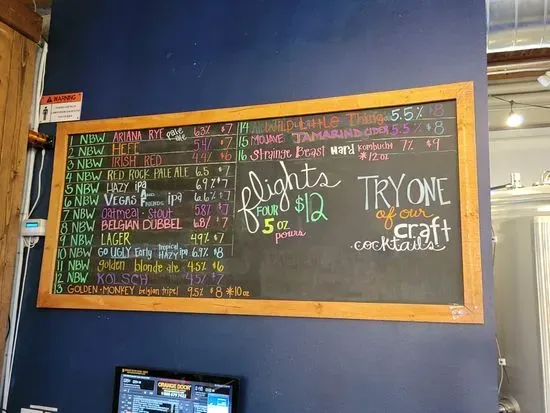 WARNING
1 NBW ARIANA RYE pale ale 6.3% $7
2 NBW HEFE 5.4% $7
3 NBW IRISH RED 4.4% $6
4 NBW RED ROCK PALE ALE 6.5 $7
5 NBW HAZY ipa 6.9% $7
6 NBW VEGAS And FRIENDS ipa 6.6% $7
7 NBW oatmeal-stout 5.8% $7
8 NBW BELGIAN DUBBEL 6.8% $7
9 NBW LAGER 4.9% $7
10 NBW GO UGLY Early tropical HAZY ipa 6.9% $8
11 NBW golden blonde ale 4.5% $6
12 NBW KOLSCH 4.5% $7
13 GOLDEN-MONKEY belgian tripel 9.5% $8 *10oz
14 WILD Little Thing 5.5% $8
15 MOJAVE TAMARIND CIDER 5.5% $8
16 Strainge Beast Hard Kombucha 7% $9
*12oz
flights
FOUR $12
5 oz
pours
TRY ONE
of our
craft
cocktails
ORANGE DOOR